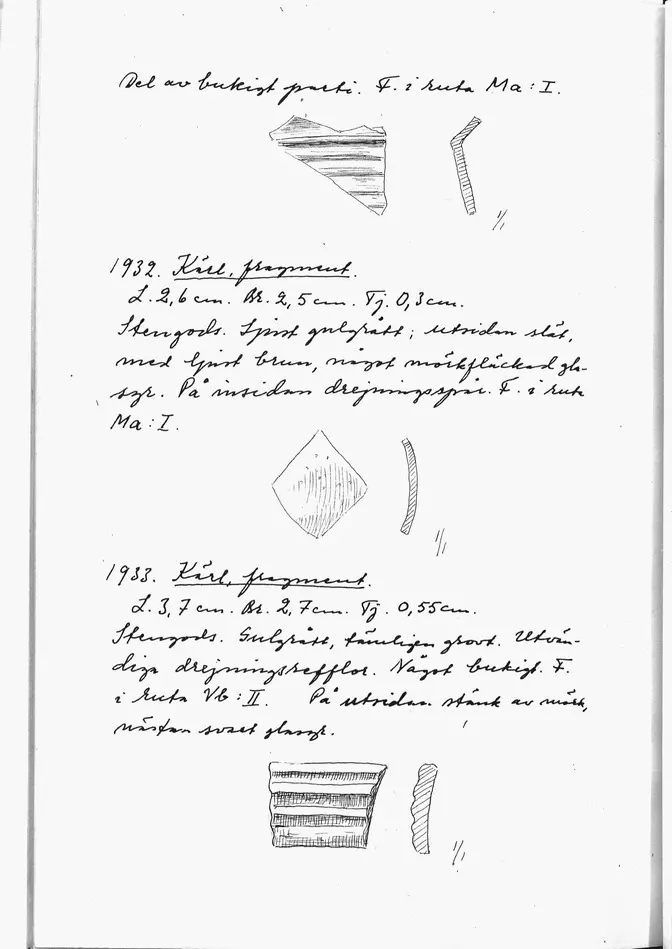 Del av bukigt parti. F. i ruta Ma: I.
1/1
1932. Kärl, fragment.
L. 2,6 cm. Br. 2,5 cm. Tj. 0,3 cm.
Stengods. Ljust gulgrått; utsidan slät,
med ljust brun, något mörkfläckad gla-
syr. På insidan drejningsspår. F. i ruta
Ma: I.
1/1
1933. Kärl, fragment.
L. 3,7 cm. Br. 2,7 cm. Tj. 0,55 cm.
Stengods. Gulgrått, tämligen grovt. Utvän-
diga drejningsrefflor. Något bukigt. F.
i ruta Vb: II. På utsidan stänk av mörk,
nästan svart glasyr.
1/1